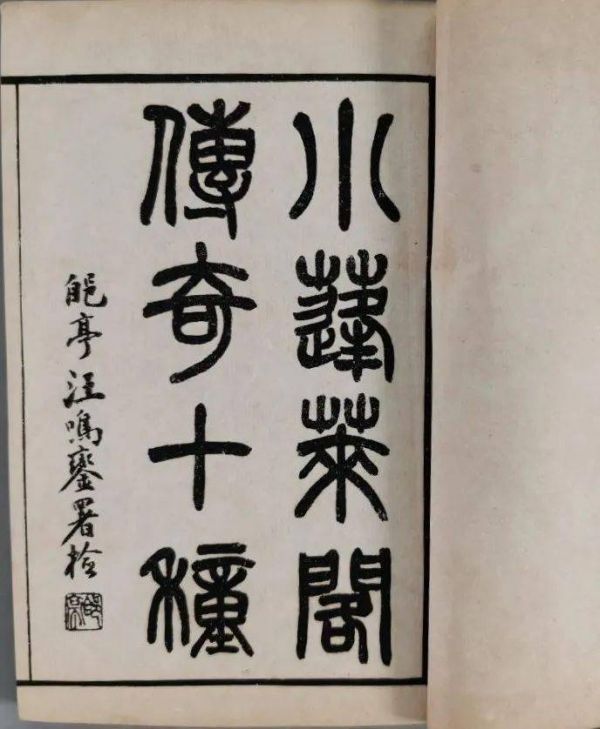 小蓬萊閣
傳奇十種
郋亭汪鳴鑾署檢
郋亭